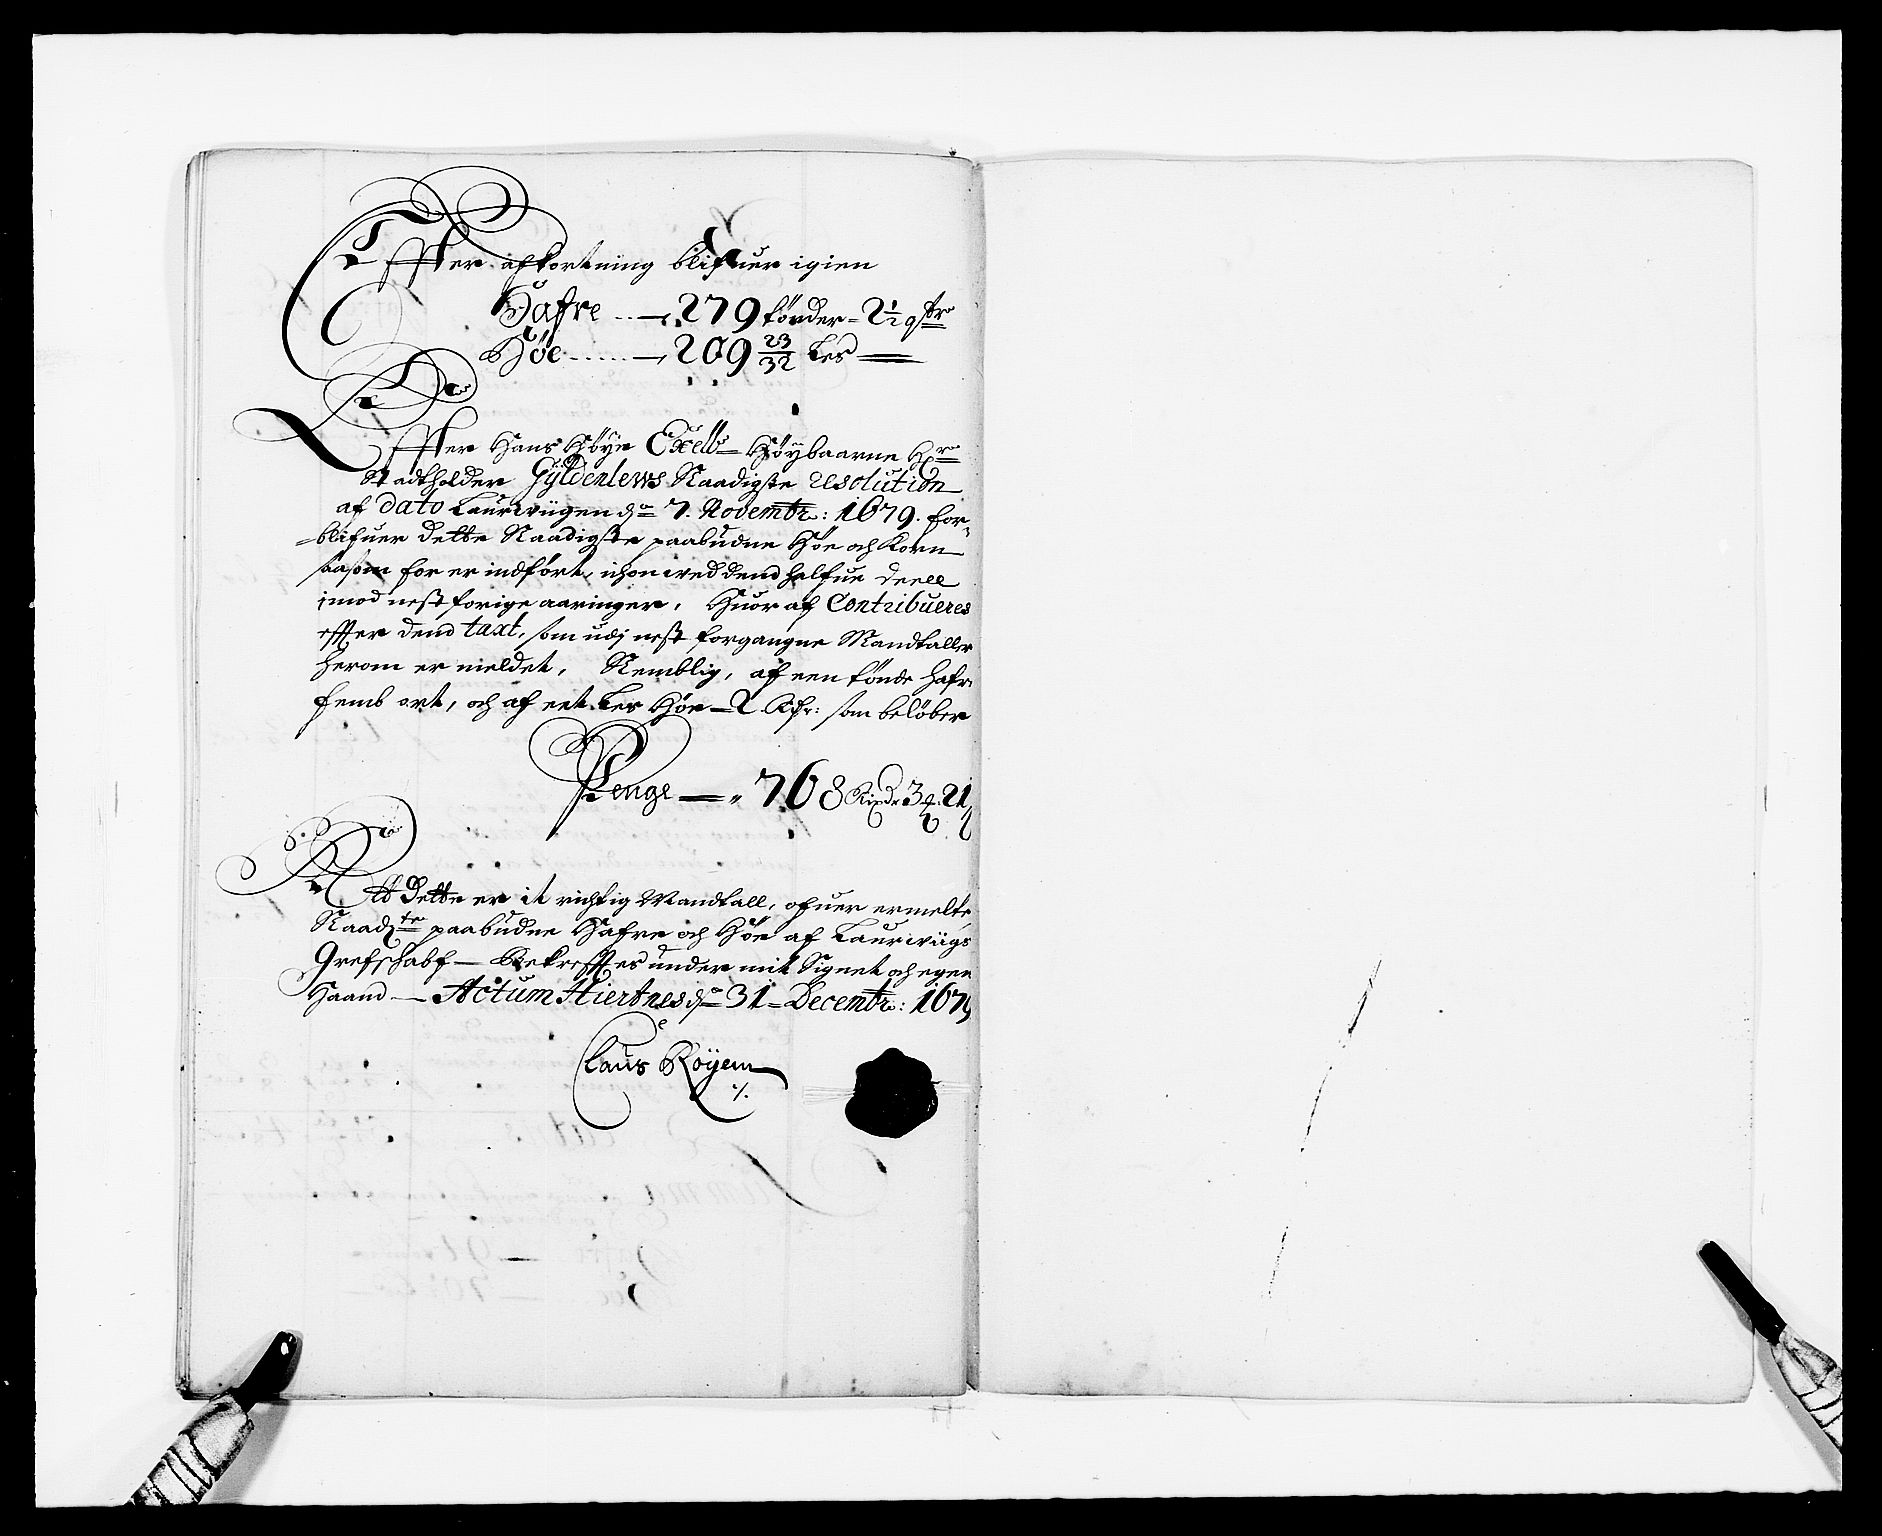 Effter afkortning blifuer igien
Hafre --- 279 tönder = 2½ qtr
Höe ------ 209 23/32 Les
Effter Hans Höye Excell Höybaarne Hr
Stadtholder Gÿldenlews Naadigste resolution
af dato Laurwiigen d 7. Novembr: 1679. for-
=blifuer dette Naadigste paabudne Höe och Korn
saasom for er indfört, ichon wed dend halfue deell
imod nest forige aaringer, Huor af Contribueres
effter dend taxt, som udj nest forgangne Mandtaller
herom er meldet, Nemblig, af een tönde hafre
femb ort, och af eet Les Höe - 2 Rdr: som belöber
Penge — " 768 Rixdr 3 21
Att Dette er it richtig Mandtall, ofuer ermelte
Naadte paabudne Hafre och Höe af Laurwiigs
Grefschabf — Bekreffter under mit Signet och egen
Haand — Actum Hiertnes d 31 = Decembr: 1679
Claus Röyem